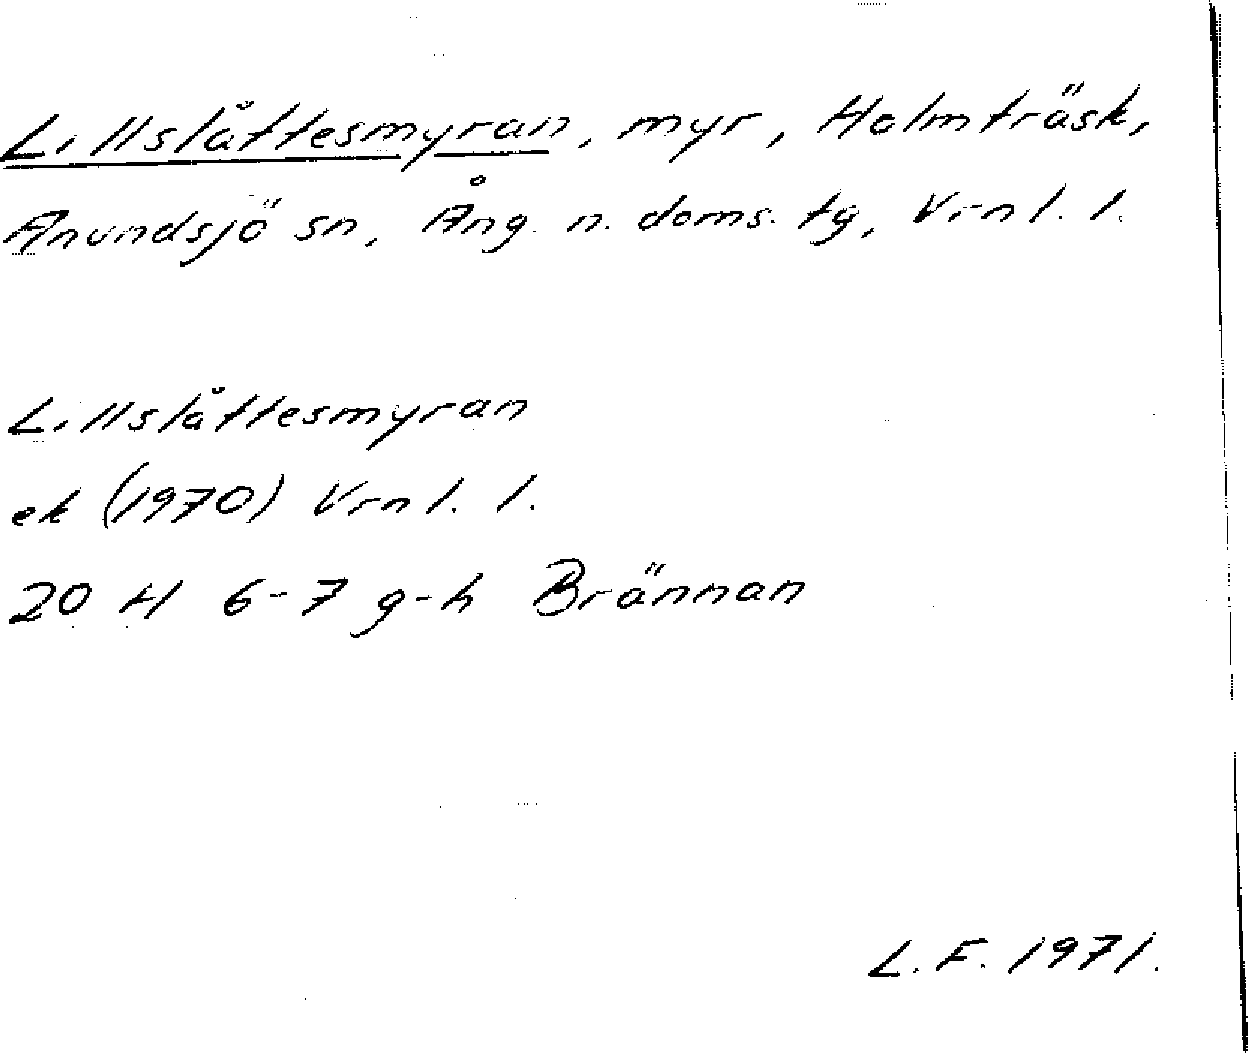 Lillslåttesmyran, myr, Holmträsk,
Anundsjö sn, Ång. n. doms. tg, Vrnl. l.
Lillslåttesmyran
ek (1970) Vrnl. l.
20 H 6-7 g-h Brännan
L. F. 1971.